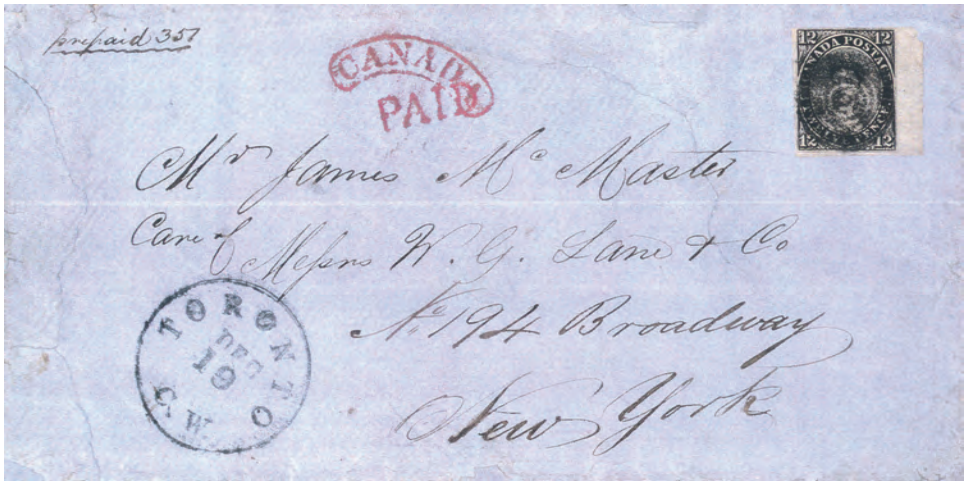 prepaid 357
CANADA
PAID
12 12
CANADA POSTAGE
12 12
Mr James Mc Master
Care of
Messrs W. G. Lane & Co
No. 194 Broadway
New York
TORONTO
DEC
19
C.W.